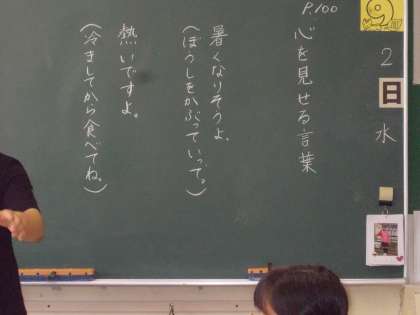 P.100
心を見せる言葉
暑くなりそうよ。
(ぼうしをかぶっていって。)
熱いですよ。
(冷ましてから食べてね。)
2
日
水